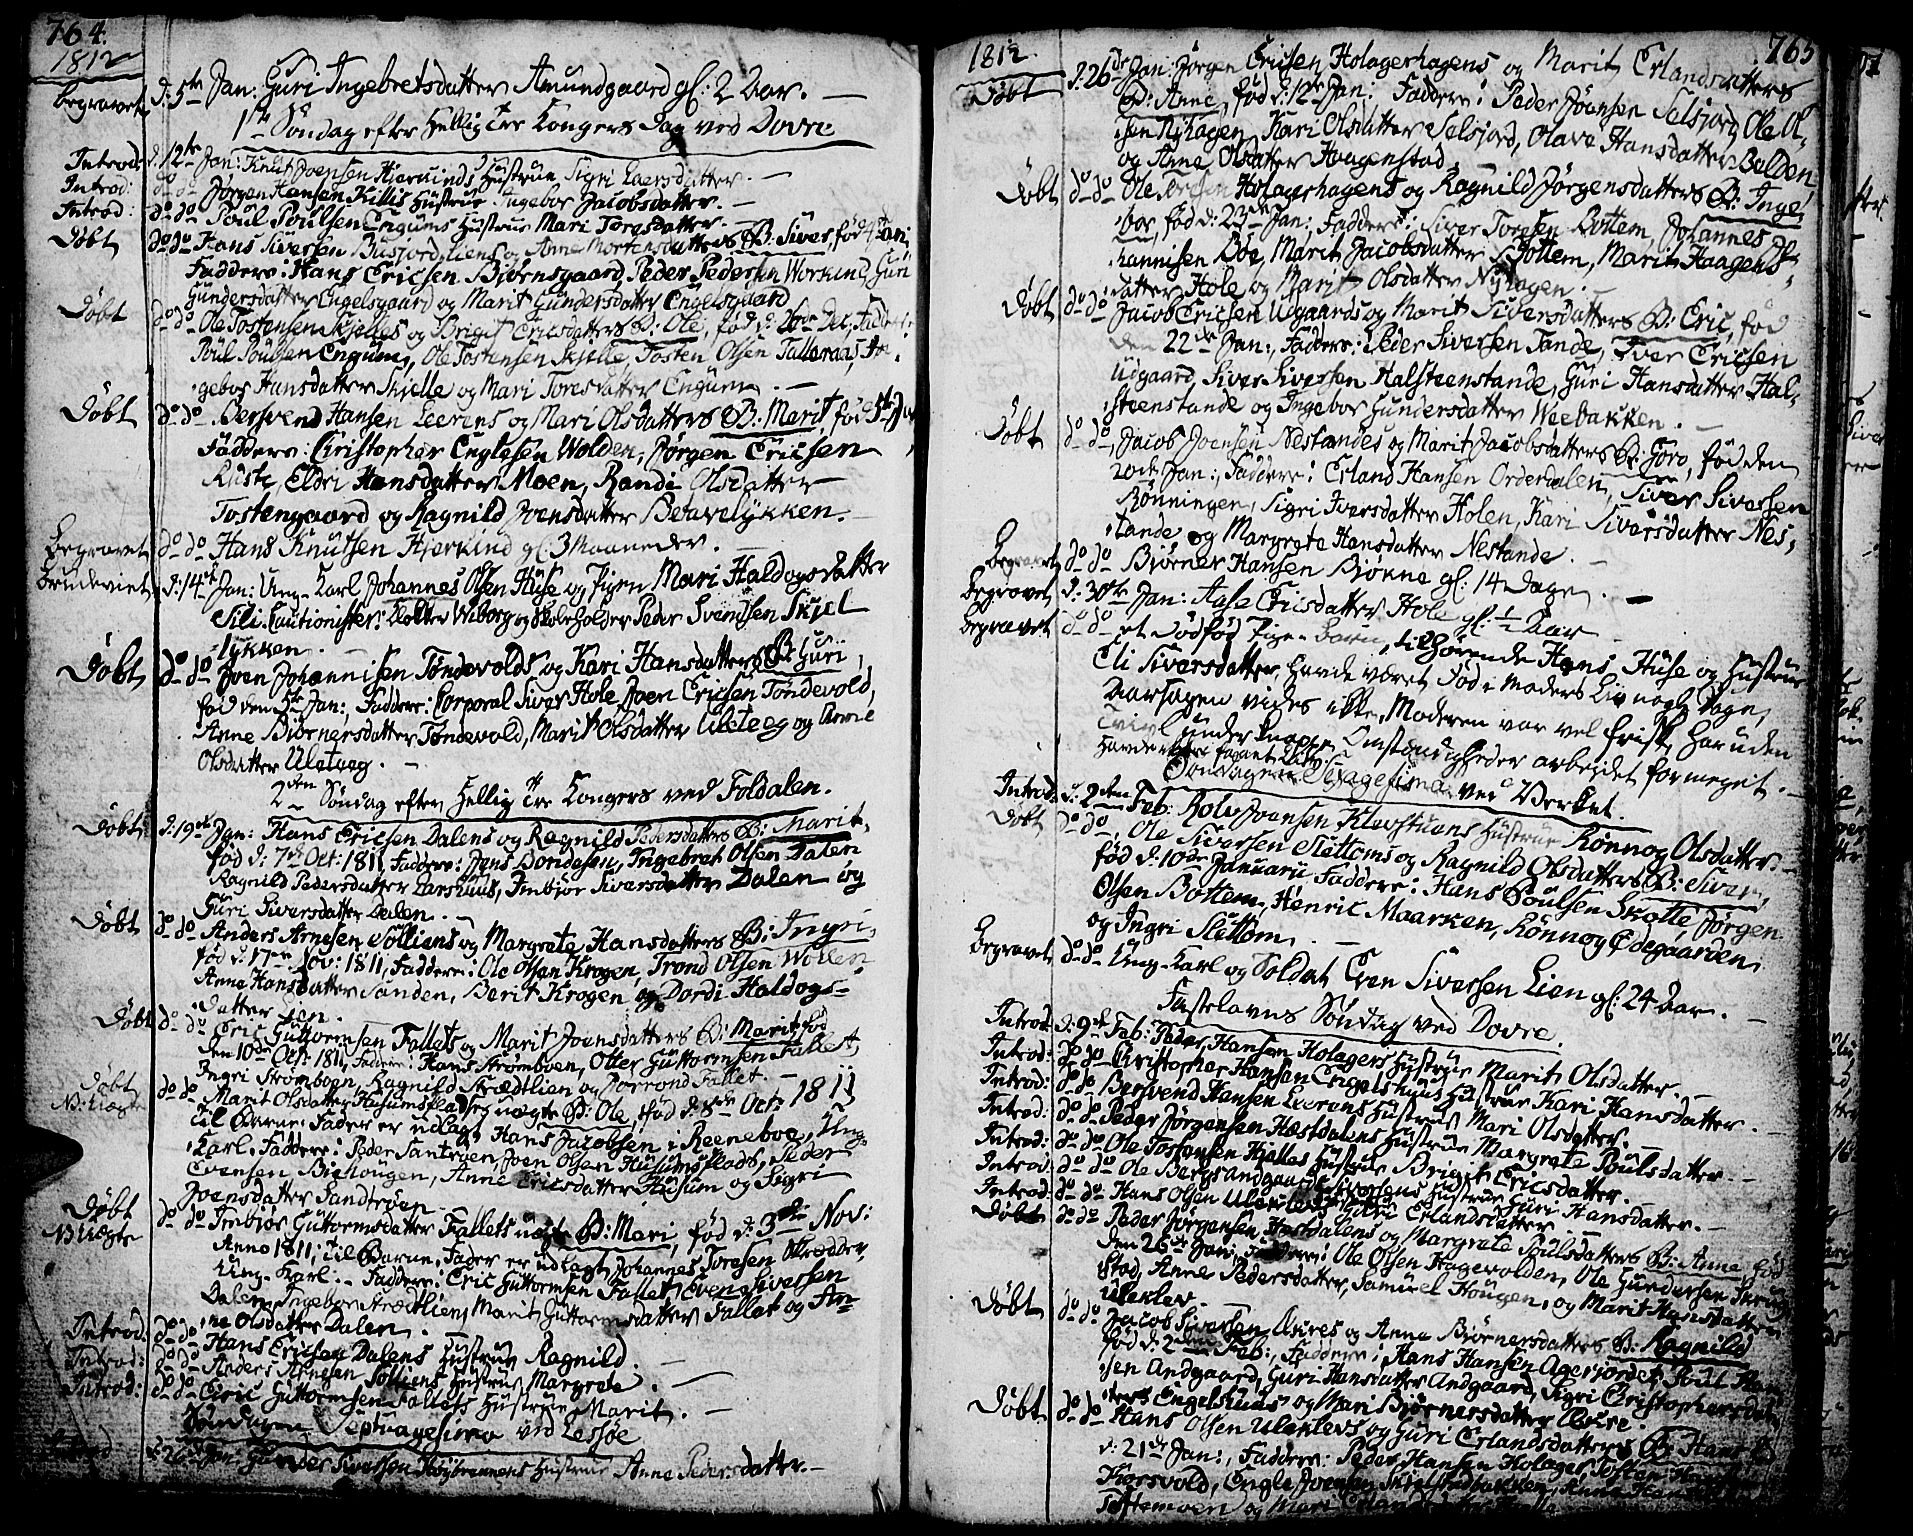 764.
1812
Begravet d: 5te Jan: Guri Ingebretsdatter Amundgaard gl: 2 Aar. —
1ste Søndag efter Hellig Tre Kongers Dag ved Dovre
Introd: d: 12te Jan: Knut Joensen Hierkinds Hustrue Sigri Laersdatter. —
Introd: do do Jørgen Hansen Killis Hustrue Ingebor Jacobsdatter. —
Introd: do do Poul Poulsen Engums Hustrue Mari Toresdatter. —
Døbt do do Hans Siversen Busjordliens og Anne Mortensdatters B: Siver, fød 4 Jan;
Faddere: Hans Ericsen Biørnsgaard, Peder Pedersen Workind, Guri
Gundersdatter Engelsgaard og Marit Gundersdatter Engelsgaard
Døbt do do Ole Tostensen Skjelles og Briget Ericsdatters B: Ole, fød d: Dec, Faddere:
Poul Poulsen Engum, Ole Tostensen Skjelle, Tosten Olsen Talleraas, In-
gebor Hansdatter Skjelle og Mari Toresdatter Engum. —
Døbt do do Bersvend Hansen Leerens og Mari Olsdatters B: Marit, fød 5te Jan
Faddere: Christopher Englesen Wolden, Jørgen Ericsen
Ruste, Eldri Hansdatter Moen, Randi Olsdatter
Tostengaard og Ragnild Joensdatter Beavelykken. —
Begravet do do Hans Knutsen Hjerkind gl: 3 Maaneder. —
Brudeviet d: 14de Jan: Ung-Karl Johannes Olsen Huse og Pigen Mari Haldogsdatter
Sili. Cautionister: Klokker Wiborg og Skoleholder Peder Svendsen Skjel
lykken. —
Døbt do do Joen Johannisen Tøndevolds og Kari Hansdatters B: Guri,
fød den 5te Jan:, Faddere: Corporal Siver Hole, Joen Ericsen Tøndevold,
Anne Biørnersdatter Tøndevold, Marit Olsdatter Uleteeg og
Olsdatter Uleteeg. —
2den Søndag efter Hellig Tre Kongers ved Foldalen.
Døbt d: 19de Jan: Hans Ericsen Dalens og Ragnild Pedersdatters B: Marit,
fød d: 7de Oct: 1811, Faddere: Jens Dordesen, Ingebret Olsen Dalen
Ragnild Pedersdatter Larshuus, Imbjør Siversdatter Dalen og
Guri Siversdatter Dalen. —
Døbt do do Anders Arnesen Solliens og Margrete Hansdatters B: Ingri,
fød d: 17en Nov: 1811, Faddere: Ole Olsen Krogen, Trond Olsen Wollen
Anne Hansdatter Sanden, Berit Krogen og Dordi Haldogs-
datter Lien. —
Døbt do do Eric Guttormsen Fallets og Marit Joensdatters B: Marit fød
den 10de Oct: 1811, Faddere: Hans Strømboen, Otter Guttormsen Fallet,
Ingri Strømboen, Ragnild Strædtlien og Torrond Fallet. —
Døbt do do Marit Olsdatter Husumsplads ung uægte B: Ole, fød d: 8de Oct: 1811
NB: Uægte Til Barne-Fader er udlagt Hans Jacobsen i Reeneboe, Ung-
Karl. Faddere: Peder Santrøen, Joen Olsen Husumsplads, Peder
Evensen Biehougen, Anne Ericsdatter Husum og Sigri
Joensdatter Sandtrøen.
Døbt do do Imbjør Guttormsdatter Fallets uægte B: Mari, fød d: 3de Nov:
NB Uægte Anno 1811, Til Barne-Fader er udlagt Johannes Toresen Skrædder,
Ung-Karl. — Faddere: Eric Guttormsen Fallet, Even Siversen
Dalen, Ingebor Strædtlien, Marit Guttormsdatter Fallet og An-
ne Olsdatter Dalen.
Introd: do do Hans Ericsen Dalens Hustrue Ragnild. —
Introd: do do Anders Arnesen Solliens Hustrue Margrete. —
Introd: do do Eric Guttormsen Fallets Hustrue Marit. —
Søndagen Septuagesima ved Lessøe
Introd: d: 26 Jan: Gunder Siversen Hustrue Anne Pedersdatter. —
1812 765
Døbt d: 26de Jan: Jørgen Ericsen Holagerhagens og Marit Erlandsdatters
B: Anne, fød d: 12te Jan: Faddere: Peder Joensen Selsjord, Ole Ol-
sen Nyhagen, Kari Olsdatter Selsjord, Olave Hansdatter Bolden
og Anne Olsdatter Haagenstad. —
Døbt do do Ole Holagerhagens og Ragnild Jørgensdatters B: Inge-
bor, fød d: 23de Jan: Faddere: Siver Torgsen Bottem, Johannes Jo-
hannisen Böe, Marit Jacobsdatter Bottem, Marit Haagens-
datter Hole og Marit Olsdatter Nyhagen. —
Døbt do do Jacob Ericsen Udgaards og Marit Siversdatters B: Eric, fød
den 22de Jan:, Faddere: Peder Siversen Tande, Iver Ericsen
Udgaard, Siver Siversen Halsteenstande, Guri Hansdatter Hal-
steenstande og Ingebor Gundersdatter Weebakken. —
Døbt do do Jacob Joensen Nestandes og Marit Jacobsdatters B: Joro, fød den
20de Jan:, Faddere: Erland Hansen Orderdalen, Siver Siversen
Bönningen, Sigri Iversdatter Holen, Kari Siversdatter Nes-
tande og Margrete Hansdatter Nestande. —
Begravet do do Biørner Hansen Bjøkne gl: 14 Dage. —
Begravet d: 30te Jan: Aase Ericsdatter Hole gl: 1/2 Aar —
Begravet do do et Dødfød Pige-Barn, tilhørende Hans Huse og Hustrue
Eli Siversdatter, havde været Død i Moders Liv nogle Dage,
Aarsagen vides ikke, Moderen var vel frisk, har uden
Tvivl under Omstændigheder arbeidet formeget. —
Søndagen Sexagesima ved Verket.
Introd: d: 2den Feb: Rolv Joensen Klevstuens Hustrue Rønnog Olsdatter. —
Døbt do do, Ole Siversen Slettoms og Ragnild Olsdatters B: Siver,
fød d: 10de Januarii Faddere: Hans Poulsen Skotte, Jørgen
Olsen Bottem, Henric Maarken, Rønnog Ødegaarden,
og Ingri Slettom. —
Begravet do do Ung-Karl og Soldat Even Siversen Lien gl: 24 Aar. —
Fastelavns Søndag ved Dovre.
Introd: d: 9de Feb: Peder Hansen Holagers Hustrue Marit Olsdatter. —
Introd: do do Christopher Hansen Engelshuus Hustrue Kari Hansdatter. —
Introd: do do Bersvend Hansen Leerens Hustrue Mari Olsdatter. —
Introd: do do Peder Jørgensen Hestdalens Hustrue Margrete Poulsdatter. —
Introd: do do Ole Tostensen Hjelles Hustrue Briget Ericsdatter. —
Introd: do do Ole Hustrue Guri Hansdatter. —
Introd: do do Hans Olsen Uleklevs Guri Erlandsdatter
Døbt do do Peder Jørgensen Hestdalens og Margrete Poulsdatters B: Anne, fød
den 26de Jan:, Faddere: Ole Olsen Hagevolden, Ole Gundersen
stad, Anne Pedersdatter, Samuel Hougen, og Marit Hansdatter
Uleklev.
Døbt do do Jacob Siversen og Anne Bjørnersdatters B: Ragnild
fød d: 2den Feb:, Faddere: Hans Hansen Agerjordet, Poul
sen Andgaard, Guri Hansdatter Andgaard, Sigri Christophersdat-
ter Engelshuus og Mari Bjørnersdatter
Døbt do do Hans Olsen Uleklevs og Guri Erlandsdatters B: Hans
d: 21de Jan:, Faddere: Peder Hansen Holager, Tosten
Korsvold, Engle Joensen
Toftemoen og Mari